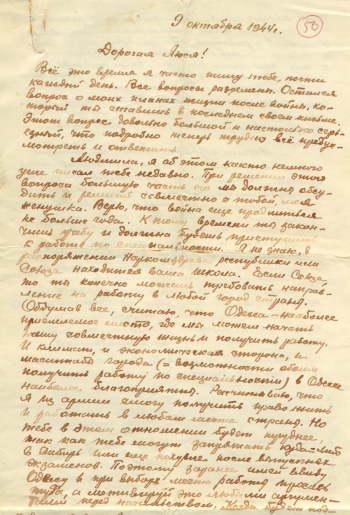 9 октября 1944 г.
50
Дорогая Люся!
Всё это время я часто пишу тебе, почти
каждый день. Все вопросы разрешены. Остался
вопрос о моих планах жизни после войны, ко-
торый ты ставишь в последнем своём письме.
Этот вопрос довольно большой и настолько серь-
езный, что подробно трудно всё преду-
смотреть и ответить.
Людмила, я об этом как-то немного
уже писал тебе недавно. При решении этого
вопроса большую часть мы должны обсу-
дить и решить совместно с тобой, моя
женушка. Верю, что война ещё продлиться
не больше года. К тому времени ты закон-
чишь учёбу и должна будешь приступить
к работе по специальности. Я не знаю, в
распоряжении Наркомздрава республики или
Союза находится ваша школа. Если Союза,
то ты конечно можешь требовать направ-
ление на работу в любой город страны.
Обдумав все, считаю, что Одесса - наиболее
приемлемое место, где мы можем начать
нашу совместную жизнь и получить работу.
И климат, и экономическая сторона, и
масштаб города (в возможности обоим
получить работу по специальности) в Одессе
наиболее благоприятны. Рассчитываю, что
я из армии смогу получить право жить
и работать в любом месте страны. Но
тебе в этом отношении будет труднее,
так как тебя могут запроектировать куда-нибудь
в Сибирь или ещё похуже после выпускных
экзаменов. Поэтому заранее имей ввиду
Одессу и при выборе места работы просись
туда, а мотивируй это любыми аргумен-
тами перед начальством. Когда будет под-